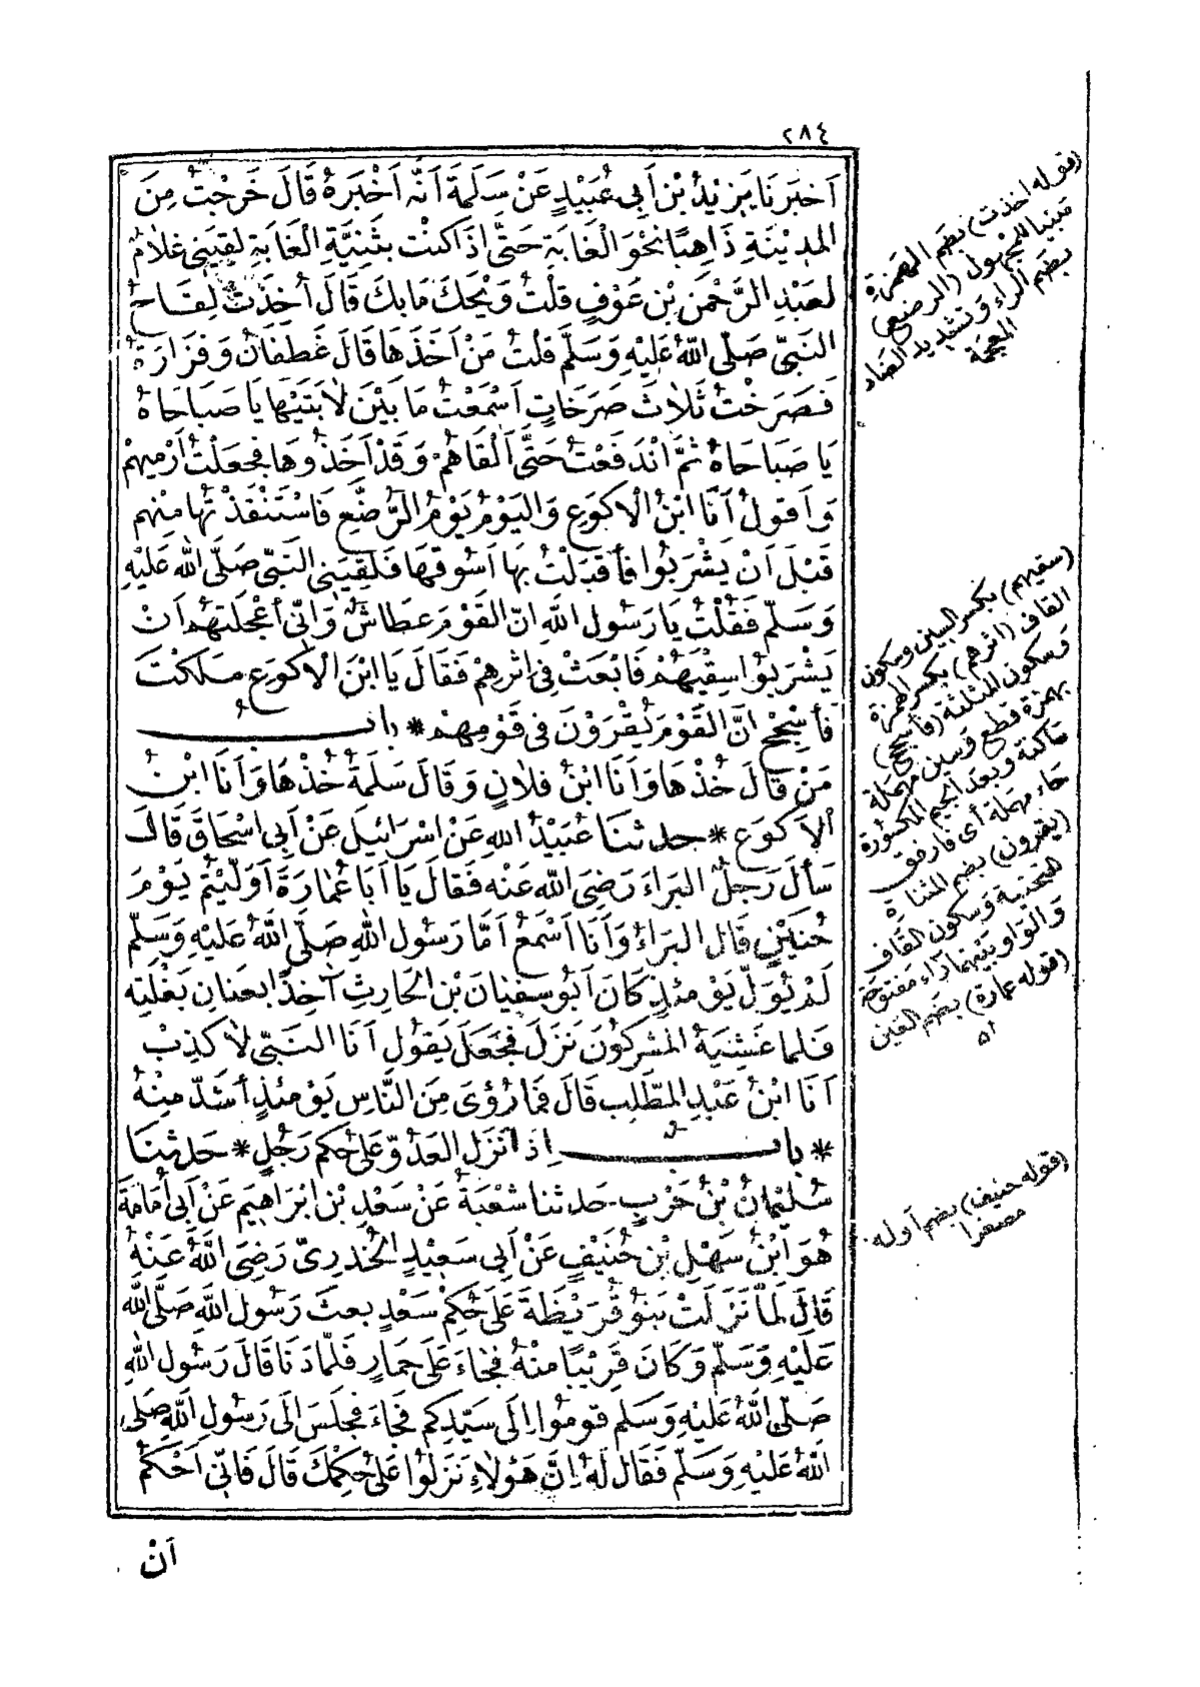 ٢٨٤
اَخْبَرَنَا يَزِيدُ بْنُ اَبِى عُبَيْدٍ عَنْ سَلَمَةَ اَنَّهُ اَخْبَرَهُ قَالَ خَرَجْتُ مِنَ
الْمَدِينَةِ ذَاهِبًا نَحْوَ الْغَابَةِ حَتَّى اِذَا كُنْتُ بِثَنِيَّةِ الْغَابَةِ لَقِيَنِى غُلاَمٌ
لِعَبْدِ الرَّحْمٰنِ بْنِ عَوْفٍ قُلْتُ وَيْحَكَ مَا بِكَ قَالَ اُخِذَتْ لِقَاحُ
النَّبِىِّ صَلَّى اللهُ عَلَيْهِ وَسَلَّمَ قُلْتُ مَنْ اَخَذَهَا قَالَ غَطَفَانُ وَفَزَارَةُ
فَصَرَخْتُ ثَلاَثَ صَرَخَاتٍ اَسْمَعْتُ مَا بَيْنَ لاَبَتَيْهَا يَا صَبَاحَاهْ
يَا صَبَاحَاهُ ثُمَّ انْدَفَعْتُ حَتَّى اَلْقَاهُمْ وَقَدْ اَخَذُوهَا فَجَعَلْتُ اَرْمِيهِمْ
وَاَقُولُ اَنَا ابْنُ الْاَكْوَعِ وَالْيَوْمُ يَوْمُ الرُّضَّعِ فَاسْتَنْقَذْتُهَا مِنْهُمْ
قَبْلَ اَنْ يَشْرَبُوا فَاَقْبَلْتُ بِهَا اَسُوقُهَا فَلَقِيَنِى النَّبِىُّ صَلَّى اللهُ عَلَيْهِ
وَسَلَّمَ فَقُلْتُ يَا رَسُولَ اللهِ اِنَّ الْقَوْمَ عِطَاشٌ وَاِنِّى اَعْجَلْتُهُمْ اَنْ
يَشْرَبُوا سِقْيَهُمْ فَابْعَثْ فِى اِثْرِهِمْ فَقَالَ يَا ابْنَ الْاَكْوَعِ مَلَكْتَ
فَاَسْجِحْ اِنَّ الْقَوْمَ يُقْرَوْنَ فِى قَوْمِهِمْ * بَابُ
مَنْ قَالَ خُذْهَا وَاَنَا ابْنُ فُلاَنٍ وَقَالَ سَلَمَةُ خُذْهَا وَاَنَا ابْنُ
الْاَكْوَعِ * حدثنا عُبَيْدُ اللهِ عَنْ اِسْرَائِيلَ عَنْ اَبِى اِسْحَاقَ قَالَ
سَأَلَ رَجُلٌ الْبَرَاءَ رَضِىَ اللهُ عَنْهُ فَقَالَ يَا اَبَا عُمَارَةَ اَوَلَّيْتُمْ يَوْمَ
حُنَيْنٍ قَالَ الْبَرَاءُ وَاَنَا اَسْمَعُ اَمَّا رَسُولُ اللهِ صَلَّى اللهُ عَلَيْهِ وَسَلَّمَ
لَمْ يُوَلِّ يَوْمَئِذٍ كَانَ اَبُو سُفْيَانَ بْنُ الْحَارِثِ آخِذًا بِعِنَانِ بَغْلَتِهِ
فَلَمَّا غَشِيَهُ الْمُشْرِكُونَ نَزَلَ فَجَعَلَ يَقُولُ اَنَا النَّبِىُّ لاَ كَذِبْ
اَنَا ابْنُ عَبْدِ الْمُطَّلِبْ قَالَ فَمَا رُؤِىَ مِنَ النَّاسِ يَوْمَئِذٍ اَشَدُّ مِنْهُ
* بَابُ اِذَا نَزَلَ الْعَدُوُّ عَلَى حُكْمِ رَجُلٍ * حَدثنَا
سُلَيْمَانُ بْنُ حَرْبٍ حدثنا شُعْبَةُ عَنْ سَعْدِ بْنِ اِبْرَاهِيمَ عَنْ اَبِى اُمَامَةَ
هُوَ ابْنُ سَهْلِ بْنِ حُنَيْفٍ عَنْ اَبِى سَعِيْدٍ الْخُدْرِىِّ رَضِىَ اللهُ عَنْهُ
قَالَ لَمَّا نَزَلَتْ بَنُو قُرَيْظَةَ عَلَى حُكْمِ سَعْدٍ بَعَثَ رَسُولُ اللهِ صَلَّى اللهُ
عَلَيْهِ وَسَلَّمَ وَكَانَ قَرِيْبًا مِنْهُ فَجَاءَ عَلَى حِمَارٍ فَلَمَّا دَنَا قَالَ رَسُولُ اللهِ
صَلَّى اللهُ عَلَيْهِ وَسَلَّمَ قُومُوا اِلَى سَيِّدِكُمْ فَجَاءَ فَجَلَسَ اِلَى رَسُولِ اللهِ صَلَّى
اللهُ عَلَيْهِ وَسَلَّمَ فَقَالَ لَهُ اِنَّ هَؤُلاَءِ نَزَلُوا عَلَى حُكْمِكَ قَالَ فَاِنِّى اَحْكُمُ
اَنْ
(قوله اخذت) بضم الهمزة
مبنيا للمجهول (الرضع)
بضم الراء وتشديد الضاد
المعجمة
(سقيهم) بكسر السين وسكون
القاف (اثرهم) بكسر الهمزة
وسكون المثلثة (فأسجح)
بهمزة قطع وسين مهملة
ساكنة وبعد الجيم المكسورة
حاء مهملة أى فارفق
(يقرون) بضم المثناة
التحتية وسكون القاف
والواو بينهما راء مفتوحة
(قوله عمارة) بضم العين
اه
(قوله حنيف) بضم أوله
مصغرا